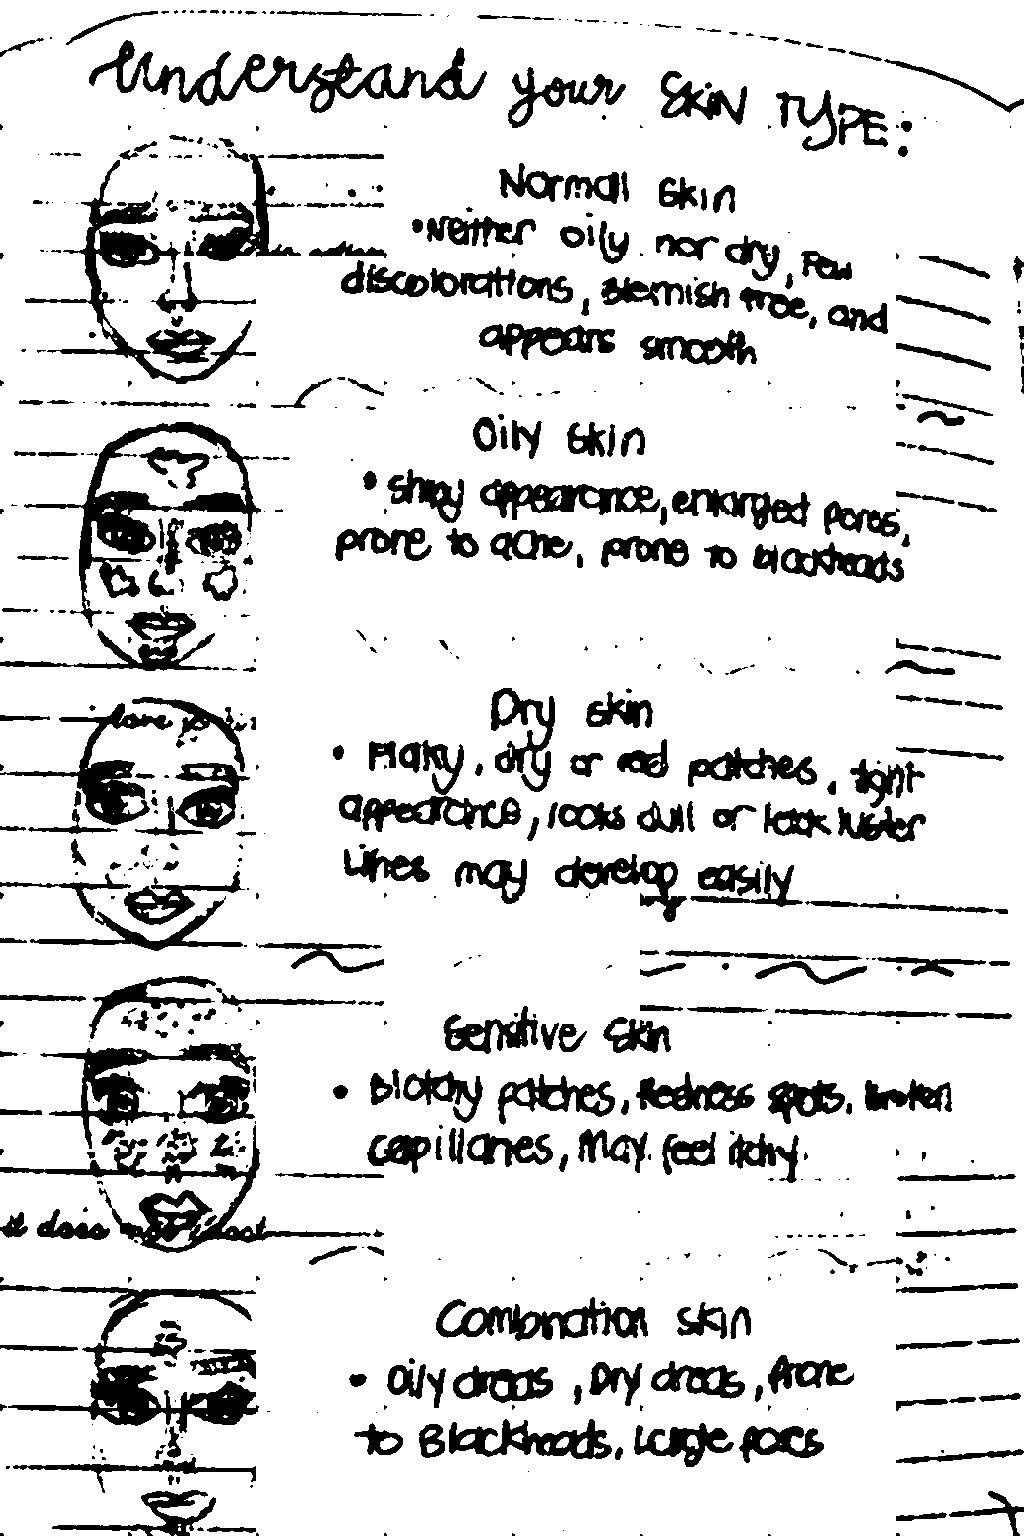 Understand your SKIN TYPE:
Normal Skin
• Neither oily nor dry, Few
discolorations, Blemish free, and
appears smooth
Oily Skin
• Shiny appearance, enlarged pores,
prone to acne, prone to blackheads
love
Dry skin
• Flaky, dry or red patches, tight
appearance, looks dull or lack luster
Lines may develop easily
Sensitive Skin
• Blotchy patches, Redness spots, Broken
capillaries, May feel itchy.
it does not
Combination skin
• Oily areas, Dry areas, Prone
to Blackheads, Large pores